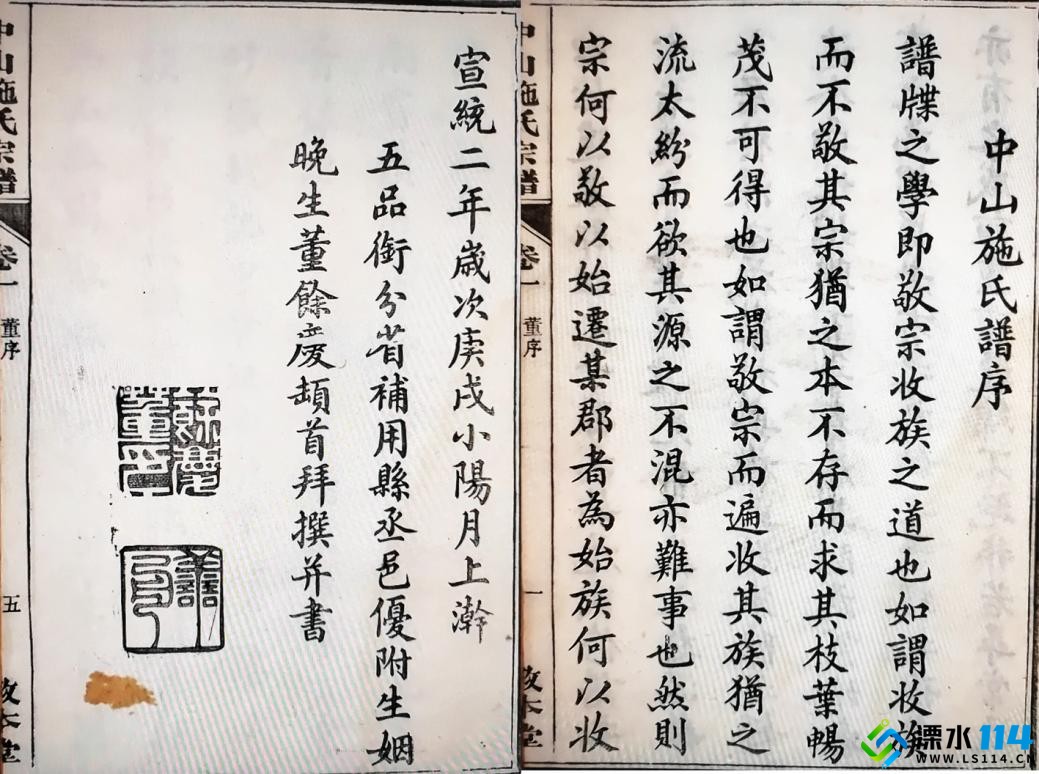 中山施氏譜序
譜牒之學即敬宗收族之道也如謂收族
而不敬其宗猶之本不存而求其枝葉暢
茂不可得也如謂敬宗而遍收其族猶之
流太紛而欲其源之不混亦難事也然則
宗何以敬以始遷某郡者為始族何以收
中山施氏宗譜
卷一
董序
一
敦本堂
宣統二年歲次庚戌小陽月上澣
五品銜分省補用縣丞邑優附生姻
晚生董餘慶頓首拜撰并書
中山施氏宗譜
卷一
董序
五
敦本堂
溧水114
WWW.LS114.CN